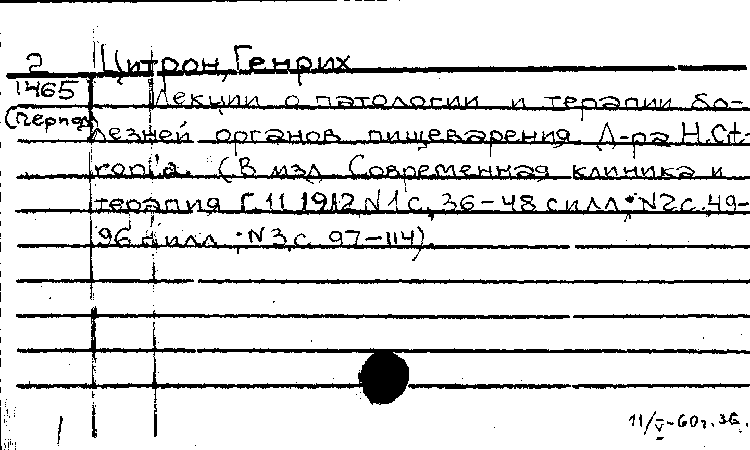 2 Цитрон, Генрих
1465 Лекции о патологии и терапии бо-
(период) лезней органов пищеварения Д-ра H. Cit-
ron'a. (В изд. Современная клиника и
терапия Г. II 1912 N1 с. 36-48 с илл; N2 с. 49-
96 с илл; N3 с. 97-114).
11/V-60г. ЗБ.